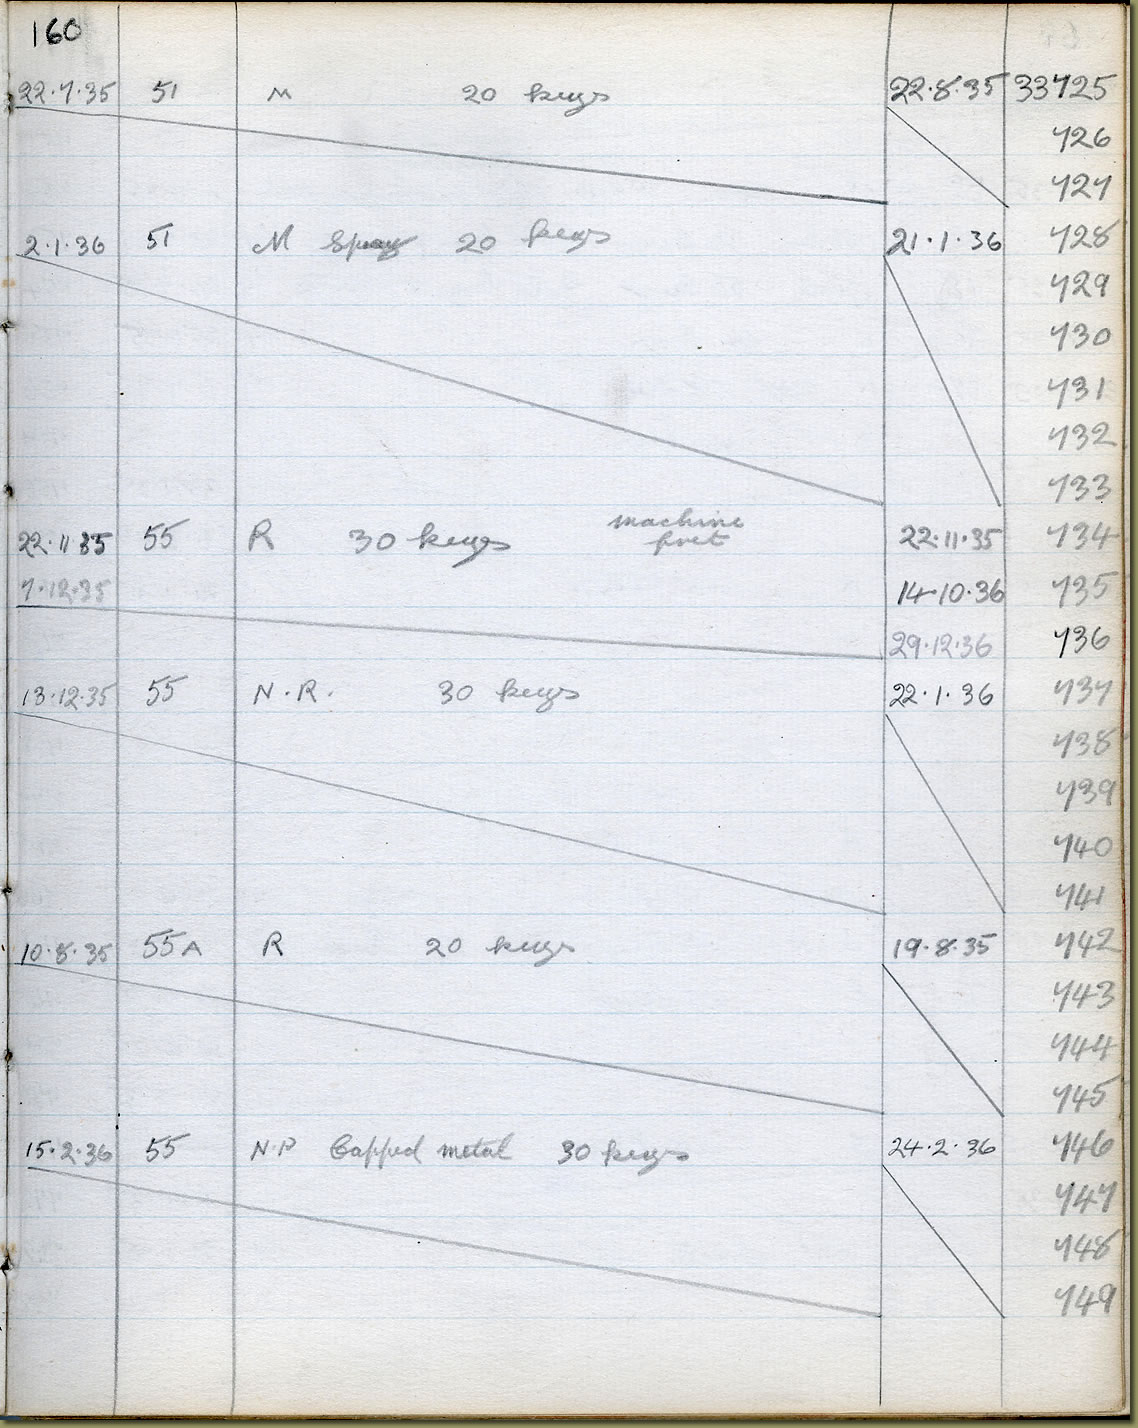 160
22.7.35 51 M 20 keys 22.8.35 33725
726
727
2.1.36 51 M 20 keys 21.1.36 728
729
730
731
732
733
machine
22.11.35 55 R 30 keys 22.11.35 734
7.12.35 14.10.36 735
29.12.36 736
13.12.35 55 N.R. 30 keys 22.1.36 737
738
739
740
741
10.8.35 55A R 20 keys 19.8.35 742
743
744
745
15.2.36 55 N.P Capped metal 30 keys 24.2.36 746
747
748
749